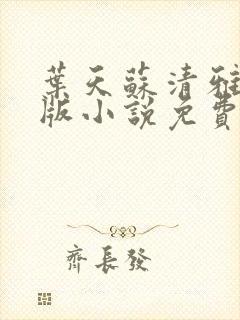 葉天蘇清雅
版小說免費
齊長發